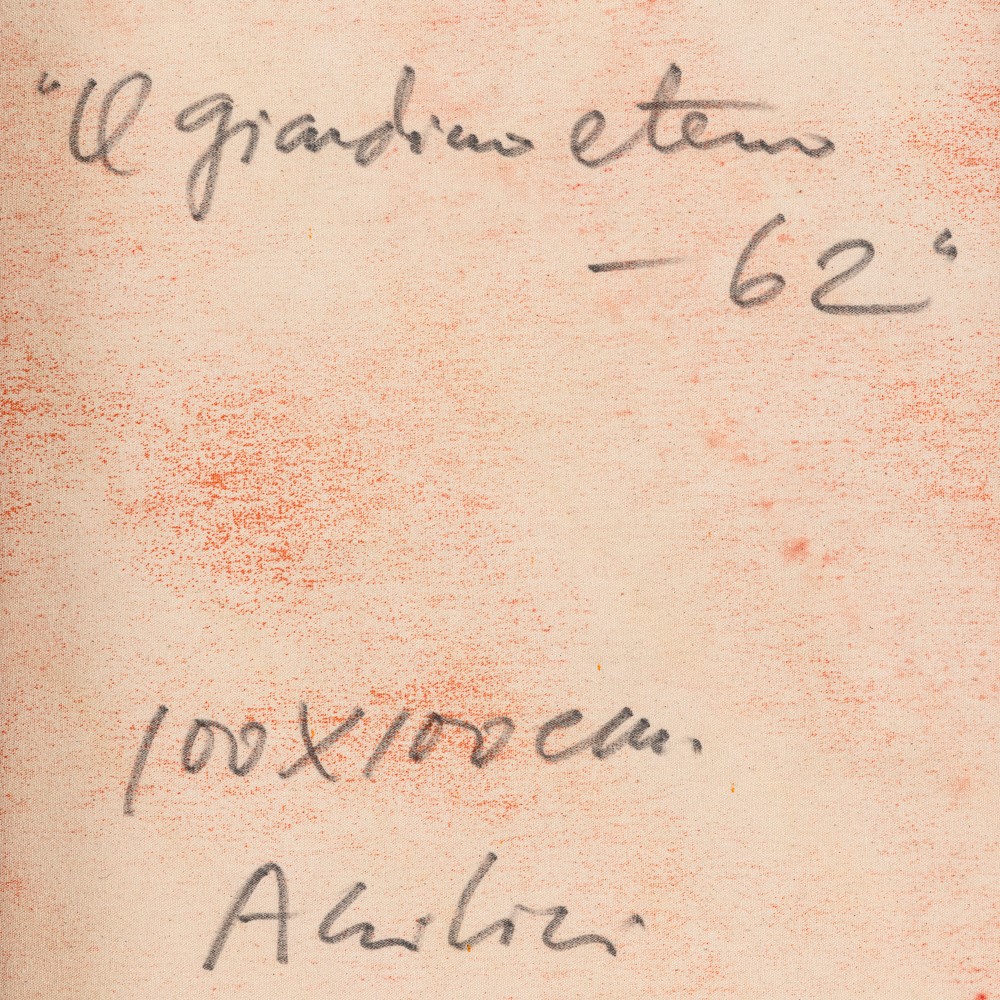 "Il giardino eterno
– 62"
100X100 cm.
Acrilici